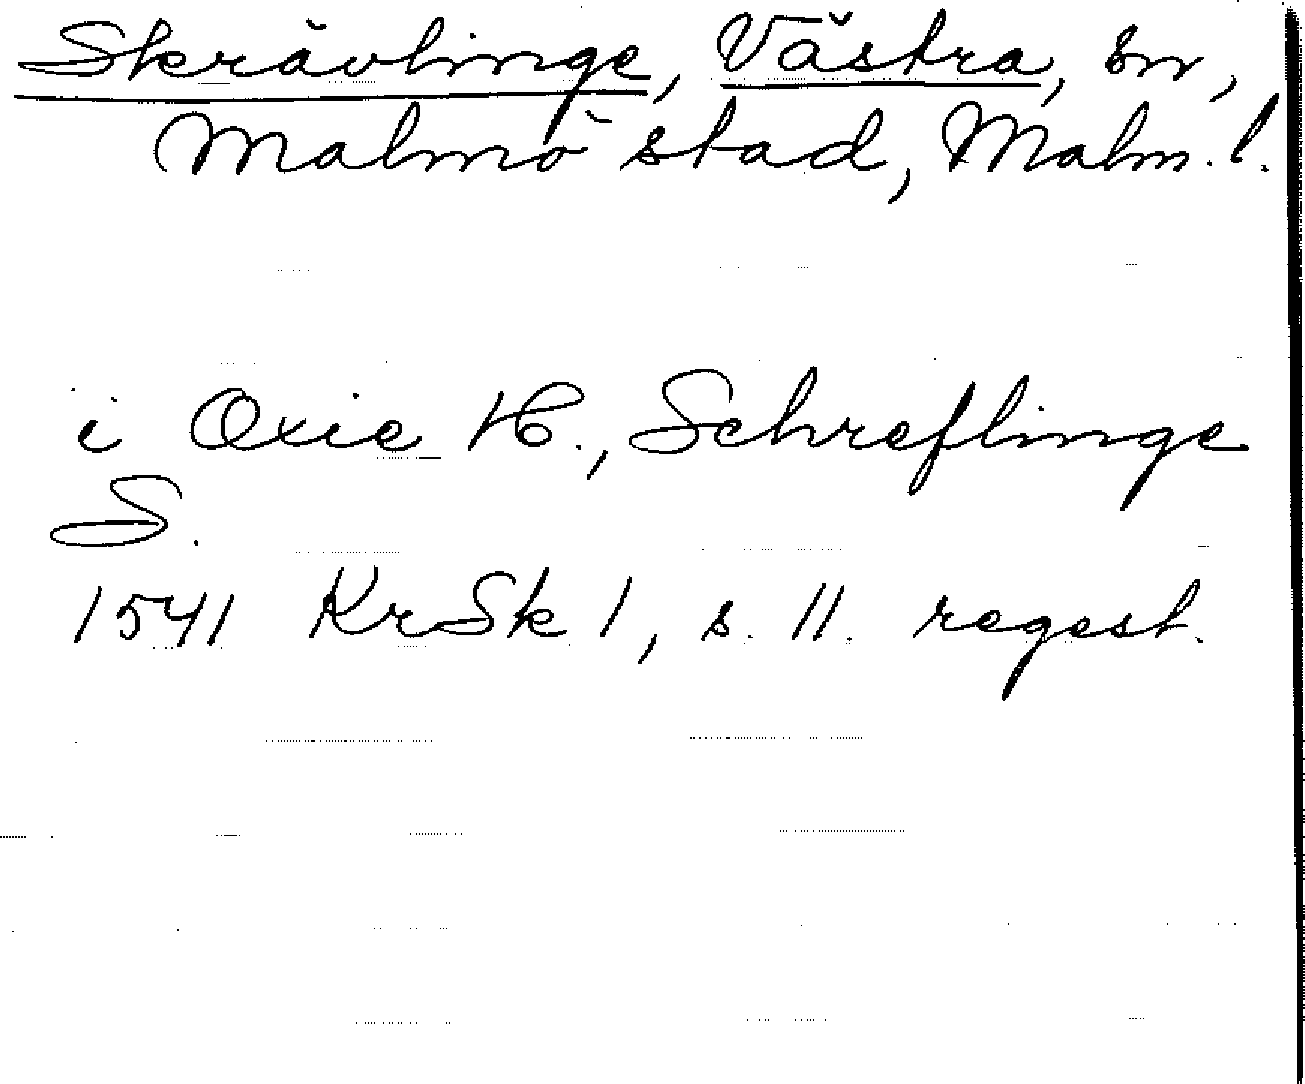 Skrävlinge, Västra, sn,
Malmö stad, Malm. l.
i Oxie H., Schreflinge
S.
1541 KrSk 1, s. 11. regest.